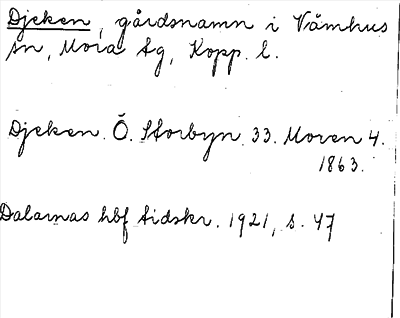 Djeken, gårdsnamn i Våmhus
sn, Mora tg, Kopp. l.
Djeken. Ö. Storbyn. 33. Moren 4.
1863.
Dalarnas hbf tidskr. 1921, s. 47